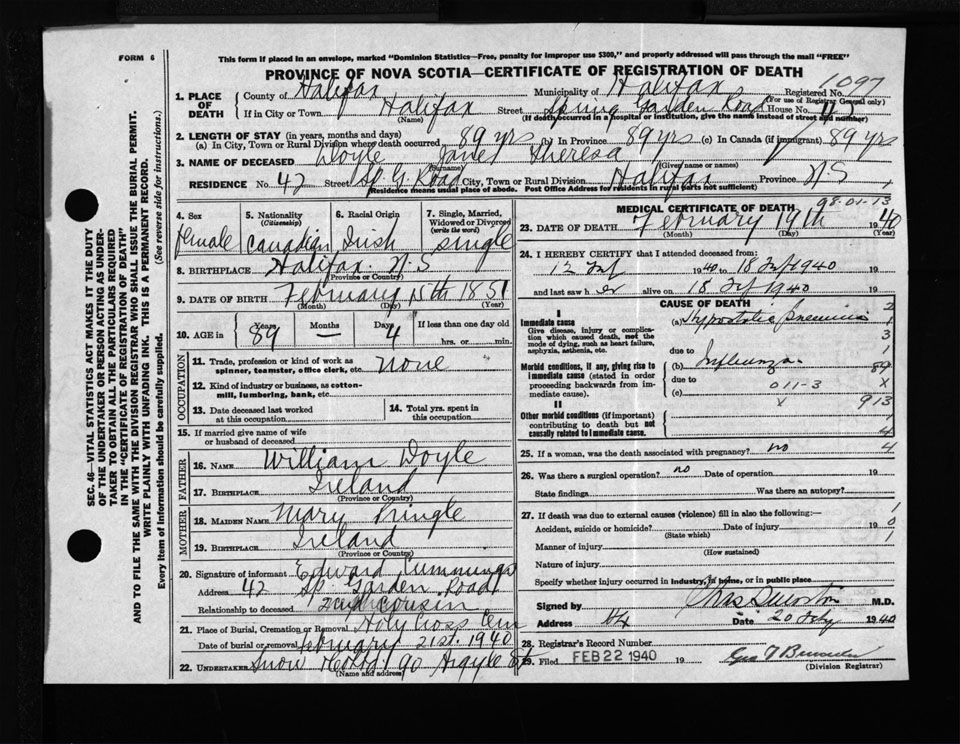 FORM 6
This form if placed in an envelope, marked "Dominion Statistics—Free, penalty for improper use $300," and properly addressed will pass through the mail "FREE"
PROVINCE OF NOVA SCOTIA—CERTIFICATE OF REGISTRATION OF DEATH
1097
1. PLACE OF DEATH
County of Halifax Municipality of Halifax Registered No.
(For use of Registrar General only)
If in City or Town Halifax Street Spring Garden Road House No. 42
(Name) (If death occurred in a hospital or institution, give the name instead of street and number)
2. LENGTH OF STAY (in years, months and days)
(a) In City, Town or Rural Division where death occurred 89 yrs (b) In Province 89 yrs (c) In Canada (if immigrant) 89 yrs
3. NAME OF DECEASED Doyle Janet Theresa
(Surname) (Given name or names)
RESIDENCE No. 42 Street Sp. G. Road City, Town or Rural Division Halifax Province N.S
Residence means usual place of abode. Post Office Address for residents in rural parts not sufficient)
4. Sex
female
5. Nationality (Citizenship)
Canadian
6. Racial Origin
Irish
7. Single, Married, Widowed or Divorced (write the word)
single
8. BIRTHPLACE Halifax N.S
(Province or Country)
9. DATE OF BIRTH February 15th 1851
(Month) (Day) (Year)
10. AGE in Years 89 Months — Days 4 If less than one day old
hrs. or min.
OCCUPATION
11. Trade, profession or kind of work as spinner, teamster, office clerk, etc. none
12. Kind of industry or business, as cotton-mill, lumbering, bank, etc.
13. Date deceased last worked at this occupation
14. Total yrs. spent in this occupation
15. If married give name of wife or husband of deceased
FATHER
16. NAME William Doyle
17. BIRTHPLACE Ireland
(Province or Country)
MOTHER
18. MAIDEN NAME Mary Pringle
19. BIRTHPLACE Ireland
(Province or Country)
20. Signature of informant Edward Cummings
Address 42 Sp. Garden Road
Relationship to deceased cousin
21. Place of Burial, Cremation or Removal Holy Cross Cem
Date of burial or removal February 21st. 1940
22. UNDERTAKER Snow 90 Argyle St
(Name and address)
MEDICAL CERTIFICATE OF DEATH 98-01-13
23. DATE OF DEATH February 19th 1940
(Month) (Day) (Year)
24. I HEREBY CERTIFY that I attended deceased from:
12 Feb 1940 to 18 Feb 1940 19
and last saw her alive on 18 Feb 1940 19
CAUSE OF DEATH
I
Immediate cause
Give disease, injury or complication which caused death, not the mode of dying, such as heart failure, asphyxia, asthenia, etc.
(a) Hypostatic Pneumonia
due to
Morbid conditions, if any, giving rise to immediate cause (stated in order proceeding backwards from immediate cause).
(b) Influenza
due to
011-3
(c)
x
II
Other morbid conditions (if important) contributing to death but not causally related to immediate cause.
2
1
3
1
89
X
913
1
4
25. If a woman, was the death associated with pregnancy? no 4
26. Was there a surgical operation? no Date of operation
State findings Was there an autopsy?
27. If death was due to external causes (violence) fill in also the following:— 1
Accident, suicide or homicide? Date of injury 19 0
(State which) 1
Manner of injury
(How sustained)
Nature of injury
Specify whether injury occurred in industry, in home, or in public place
Signed by M.D.
Address Hfx Date 20 Feby 1940
28. Registrar's Record Number
29. Filed FEB 22 1940 19
(Division Registrar)
SEC. 46—VITAL STATISTICS ACT MAKES IT THE DUTY
OF THE UNDERTAKER OR PERSON ACTING AS UNDER-
TAKER TO OBTAIN ALL THE PARTICULARS REQUIRED
IN THE "CERTIFICATE OF REGISTRATION OF DEATH"
AND TO FILE THE SAME WITH THE DIVISION REGISTRAR WHO SHALL ISSUE THE BURIAL PERMIT.
WRITE PLAINLY WITH UNFADING INK. THIS IS A PERMANENT RECORD.
Every item of Information should be carefully supplied. (See reverse side for instructions.)